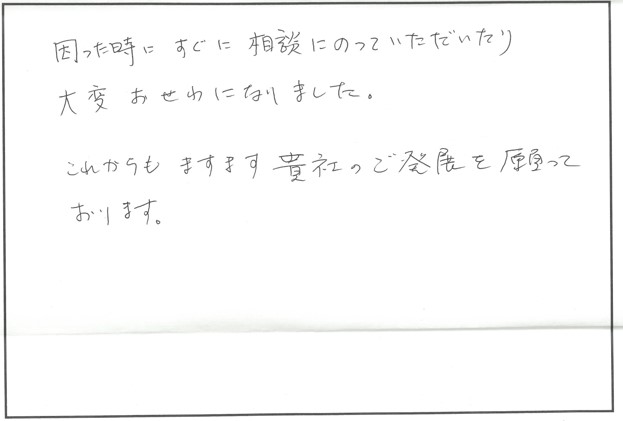 困った時に すぐに 相談にのっていただいたり
大変 おせわになりました。
これからも ますます 貴社のご発展を願って
おります。